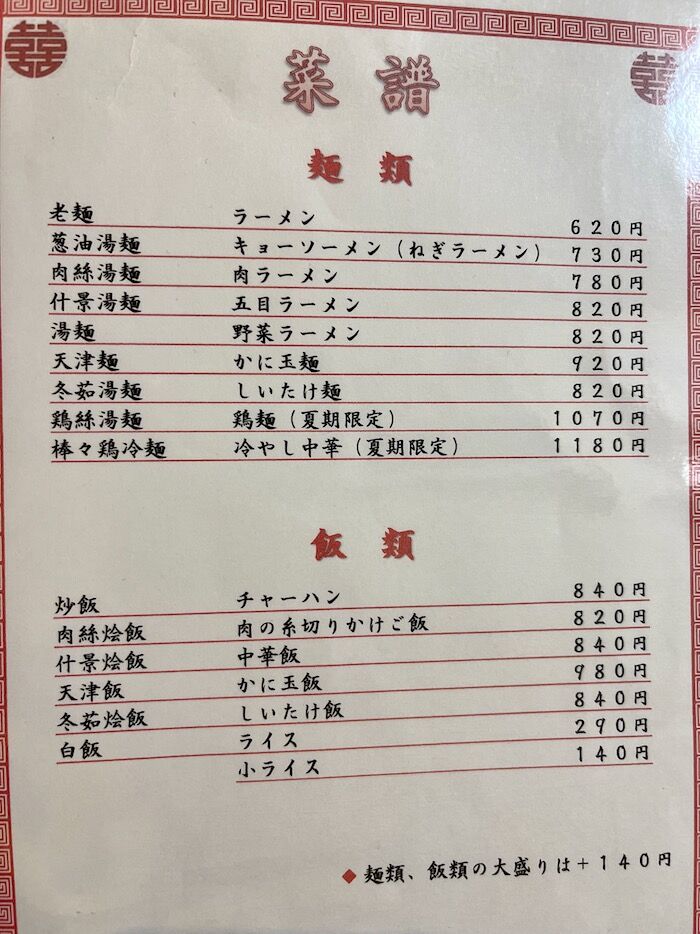 菜譜
麺類
老麺 ラーメン 620円
葱油湯麺 キョーソーメン（ねぎラーメン） 730円
肉絲湯麺 肉ラーメン 780円
什景湯麺 五目ラーメン 820円
湯麺 野菜ラーメン 820円
天津麺 かに玉麺 920円
冬茹湯麺 しいたけ麺 820円
鶏絲湯麺 鶏麺（夏期限定） 1070円
棒々鶏冷麺 冷やし中華（夏期限定） 1180円
飯類
炒飯 チャーハン 840円
肉絲烩飯 肉の糸切りかけご飯 820円
什景烩飯 中華飯 840円
天津飯 かに玉飯 980円
冬茹烩飯 しいたけ飯 840円
白飯 ライス 290円
小ライス 140円
◆麺類、飯類の大盛りは＋140円